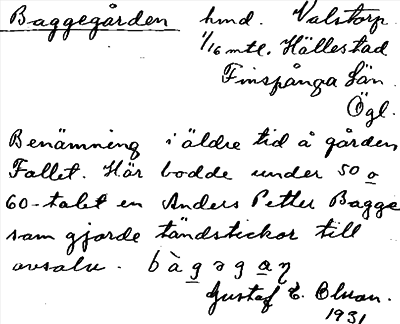 Baggegården hmd. Valstorp.
1/16 mtl. Hällestad
Finspånga län.
Ögl.
Benämning i äldre tid å gården
Fallet. Här bodde under 50 o
60-talet en Anders Petter Bagge
som gjorde tändstickor till
avsalu. bàgəgaŋ
Gustaf E.
1931